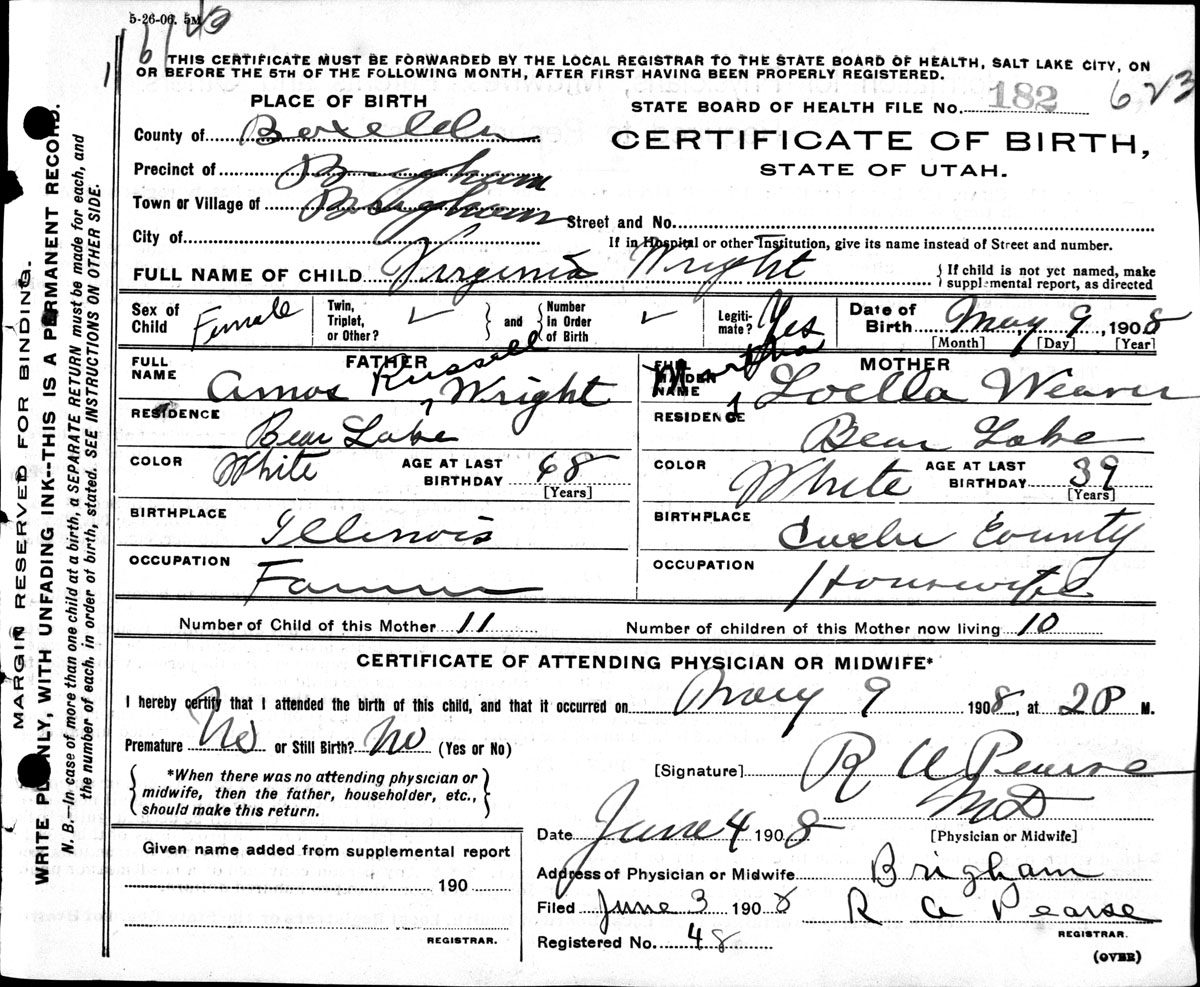 5-26-06. 5M
THIS CERTIFICATE MUST BE FORWARDED BY THE LOCAL REGISTRAR TO THE STATE BOARD OF HEALTH, SALT LAKE CITY, ON
OR BEFORE THE 5TH OF THE FOLLOWING MONTH, AFTER FIRST HAVING BEEN PROPERLY REGISTERED.
MARGIN RESERVED FOR BINDING.
WRITE PLAINLY, WITH UNFADING INK--THIS IS A PERMANENT RECORD.
N. B.—In case of more than one child at a birth, a SEPARATE RETURN must be made for each, and
the number of each, in order of birth, stated. SEE INSTRUCTIONS ON OTHER SIDE.
PLACE OF BIRTH
STATE BOARD OF HEALTH FILE NO. 182 623
County of Boxelder
CERTIFICATE OF BIRTH,
STATE OF UTAH.
Precinct of Brigham
Town or Village of Brigham
Street and No.
City of
If in Hospital or other Institution, give its name instead of Street and number.
FULL NAME OF CHILD Virginia Wright
{ If child is not yet named, make
supplemental report, as directed
Sex of Child Female
Twin, Triplet, or Other? ✓
} and { Number in Order of Birth ✓
Legitimate? Yes
Date of Birth May 9, 1908
[Month] [Day] [Year]
FATHER
FULL NAME Amos Russell Wright
RESIDENCE Bear Lake
COLOR White AGE AT LAST BIRTHDAY 68
[Years]
BIRTHPLACE Illinois
OCCUPATION Farmer
MOTHER
FULL MAIDEN NAME Martha Loella Weaver
RESIDENCE Bear Lake
COLOR White AGE AT LAST BIRTHDAY 39
[Years]
BIRTHPLACE Cache County
OCCUPATION Housewife
Number of Child of this Mother 11 Number of children of this Mother now living 10
CERTIFICATE OF ATTENDING PHYSICIAN OR MIDWIFE*
I hereby certify that I attended the birth of this child, and that it occurred on May 9 1908, at 2 P M.
Premature No or Still Birth? No (Yes or No)
{ *When there was no attending physician or
midwife, then the father, householder, etc.,
should make this return. }
[Signature] R A Pearse
MD
[Physician or Midwife]
Date June 4 1908
Given name added from supplemental report
190
REGISTRAR.
Address of Physician or Midwife Brigham
Filed June 3 1908 R A Pearse
REGISTRAR.
Registered No. 48
(OVER)